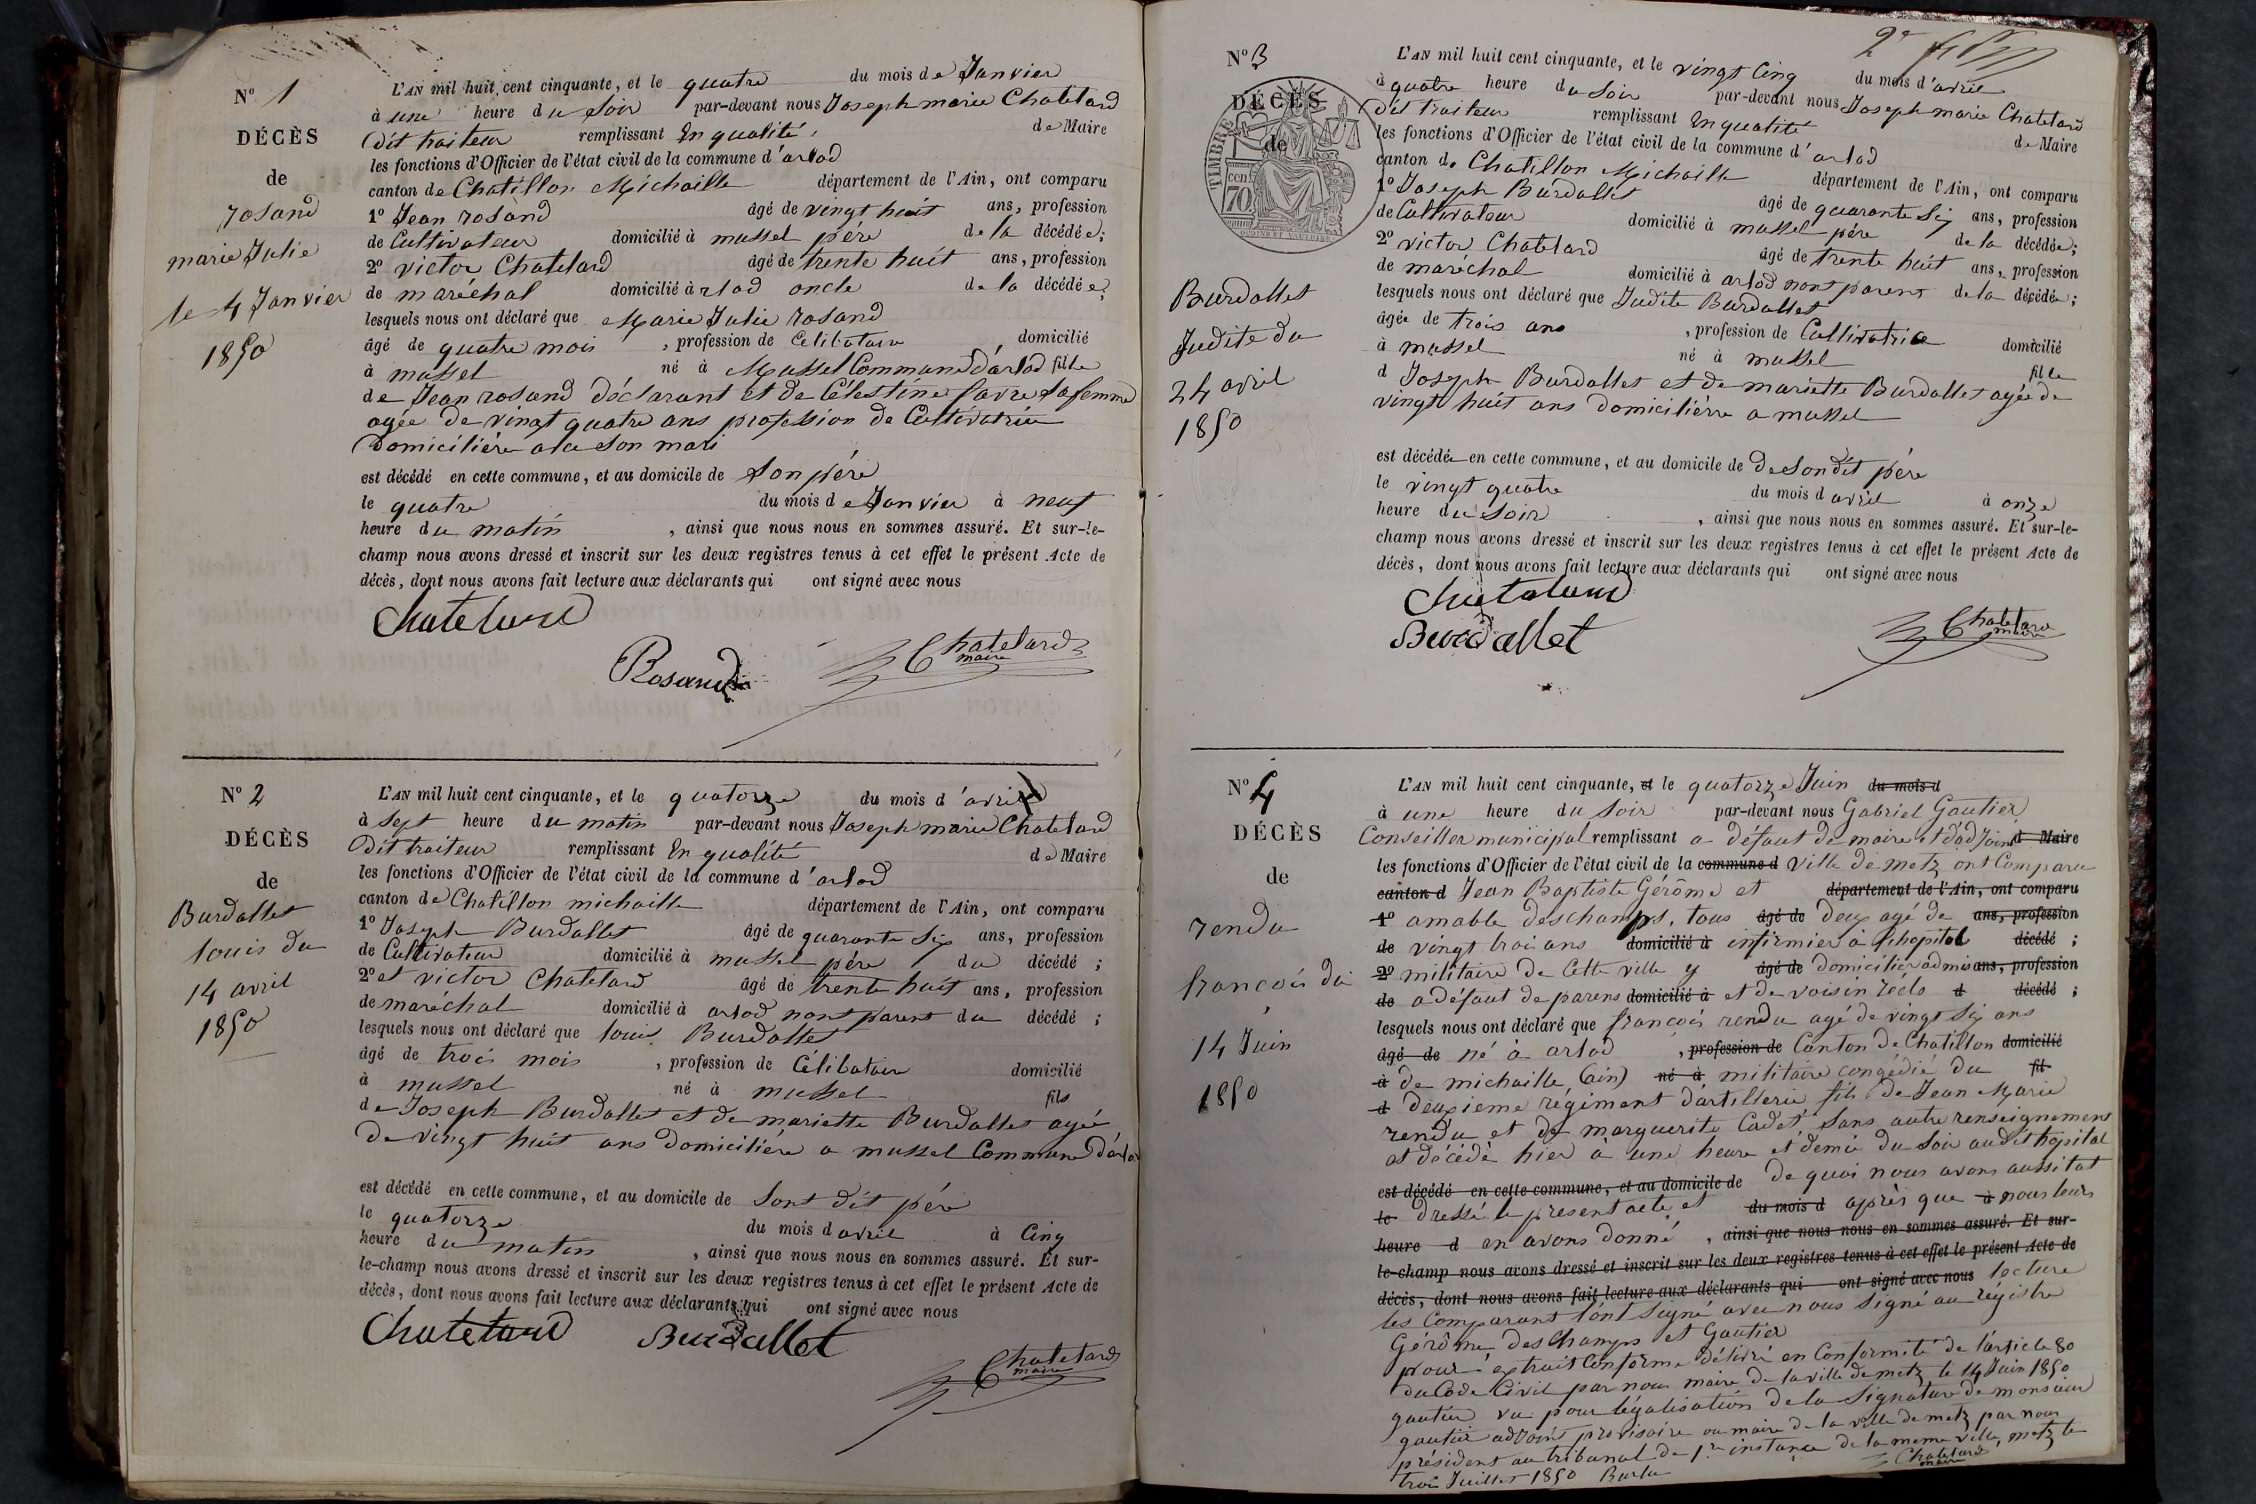 N° 1
DÉCÈS
de
rosand
marie Julie
le 4 Janvier
1850
L'AN mil huit cent cinquante, et le quatre du mois de Janvier
à une heure du Soir par-devant nous Joseph marie Chatelard
dit traiteur remplissant En qualité de Maire
les fonctions d'Officier de l'état civil de la commune d'arlod
canton de Chatillon Michaille département de l'Ain, ont comparu
1° Jean rosand âgé de vingt huit ans, profession
de Cultivateur domicilié à mussel pére de la décédée;
2° victor Chatelard âgé de trente huit ans, profession
de maréchal domicilié à rlod oncle de la décédée;
lesquels nous ont déclaré que Marie Julie rosand
âgé de quatre mois, profession de Celibataire domicilié
à mussel né à Mussel Commune d'arlod fille
de Jean rosand déclarant et de Célestine favre sa femme
agée de vingt quatre ans profession de Cultivatrice
domiciliére a la son mari
est décédé en cette commune, et au domicile de Son pére
le quatre du mois de Janvier à neuf
heure du matin, ainsi que nous nous en sommes assuré. Et sur-le-
champ nous avons dressé et inscrit sur les deux registres tenus à cet effet le présent Acte de
décès, dont nous avons fait lecture aux déclarants qui ont signé avec nous
Chatelard
Rosand
Chatelard
maire
N° 2
DÉCÈS
de
Burdallet
louis du
14 avril
1850
L'AN mil huit cent cinquante, et le quatorze du mois d'avril
à Sept heure du matin par-devant nous Joseph marie Chatelard
dit traiteur remplissant En qualité de Maire
les fonctions d'Officier de l'état civil de la commune d'arlod
canton de Chatillon michaille département de l'Ain, ont comparu
1° Joseph Burdallet âgé de quarante Six ans, profession
de Cultivateur domicilié à mussel pére du décédé;
2° et victor Chatelard âgé de trente huit ans, profession
de maréchal domicilié à arlod nont parent du décédé;
lesquels nous ont déclaré que louis Burdallet
âgé de trois mois, profession de Célibataire domicilié
à mussel né à mussel fils
de Joseph Burdallet et de mariette Burdallet agée
de vingt huit ans domiciliére a mussel Commune d'arlod
est décédé en cette commune, et au domicile de Sont dit pére
le quatorze du mois d avril à Cinq
heure du matin, ainsi que nous nous en sommes assuré. Et sur-
le-champ nous avons dressé et inscrit sur les deux registres tenus à cet effet le présent Acte de
décès, dont nous avons fait lecture aux déclarants qui ont signé avec nous
Chatelard Burdallet
Chatelard
maire
2e
N° 3
DÉCÈS
de
TIMBRE
70 cen
Burdallet
Judite du
24 avril
1850
L'AN mil huit cent cinquante, et le vingt Cinq du mois d'avril
à quatre heure du Soir par-devant nous Joseph marie Chatelard
dit traiteur remplissant En qualité de Maire
les fonctions d'Officier de l'état civil de la commune d'arlod
canton de Chatillon Michaille département de l'Ain, ont comparu
1° Joseph Burdallet âgé de quarante Six ans, profession
de Cultivateur domicilié à mussel pére de la décédée;
2° victor Chatelard âgé de trente huit ans, profession
de maréchal domicilié à arlod nont parent de la décédée;
lesquels nous ont déclaré que Judite Burdallet
âgée de trois ans, profession de Cultivatrice domicilié
à mussel né à mussel fille
d Joseph Burdallet et de mariette Burdallet agée de
vingt huit ans domiciliére a mussel
est décédée en cette commune, et au domicile de de Son dit pére
le vingt quatre du mois d avril à onze
heure du Soir, ainsi que nous nous en sommes assuré. Et sur-le-
champ nous avons dressé et inscrit sur les deux registres tenus à cet effet le présent Acte de
décès, dont nous avons fait lecture aux déclarants qui ont signé avec nous
Chatelard
Burdallet
Chatelard
maire
N° 4
DÉCÈS
de
rendu
francois du
14 Juin
1850
L'AN mil huit cent cinquante, et le quatorze Juin du mois d
à une heure du Soir par-devant nous Gabriel Gautier
Conseiller municipal remplissant a défaut de maire et d'adjoint d Maire
les fonctions d'Officier de l'état civil de la commune d ville de metz ont Comparu
canton d Jean Baptiste Gérôme et département de l'Ain, ont comparu
1° amable deschamps, tous âgé de deux agé de ans, profession
de vingt trois ans domicilié à infirmier à l'hopital décédé ;
2° militaire de Cette ville y âgé de domiciliér admis ans, profession
de a défaut de parens domicilié à et de voisin d décédé ;
lesquels nous ont déclaré que francois rendu agé de vingt Six ans
âgé de né à arlod, profession de Canton de Chatillon domicilié
à de michaille (ain) né à militaire congédié du fil
d deuxieme régiment d'artillerie fils de Jean Marie
rendu et de marguerite Cadet, Sans autre renseignement
et décédé hier à une heure et demie du Soir au dit hopital
est décédé en cette commune, et au domicile de de quoi nous avons aussitot
le dressé le present acte, et du mois d après que à nous leurs
heure d en avons donné, ainsi que nous nous en sommes assuré. Et sur-
le-champ nous avons dressé et inscrit sur les deux registres tenus à cet effet le présent Acte de
décès, dont nous avons fait lecture aux déclarants qui ont signé avec nous lecture
les Comparant l'ont Signé avec nous Signé au régistre
Gérôme, desChamps et Gautier
pour extrait Conforme délivré en Conformité de l'article 80
du Code Civil par nous maire de la ville de metz le 14 Juin 1850
gautier vu pour légalisation de la Signature de monsieur
gautier adjoint provisoire au maire de la ville de metz par nous
président au tribunal de 1re instance de la meme ville, metz le
trois Juillet 1850
Chatelard
maire